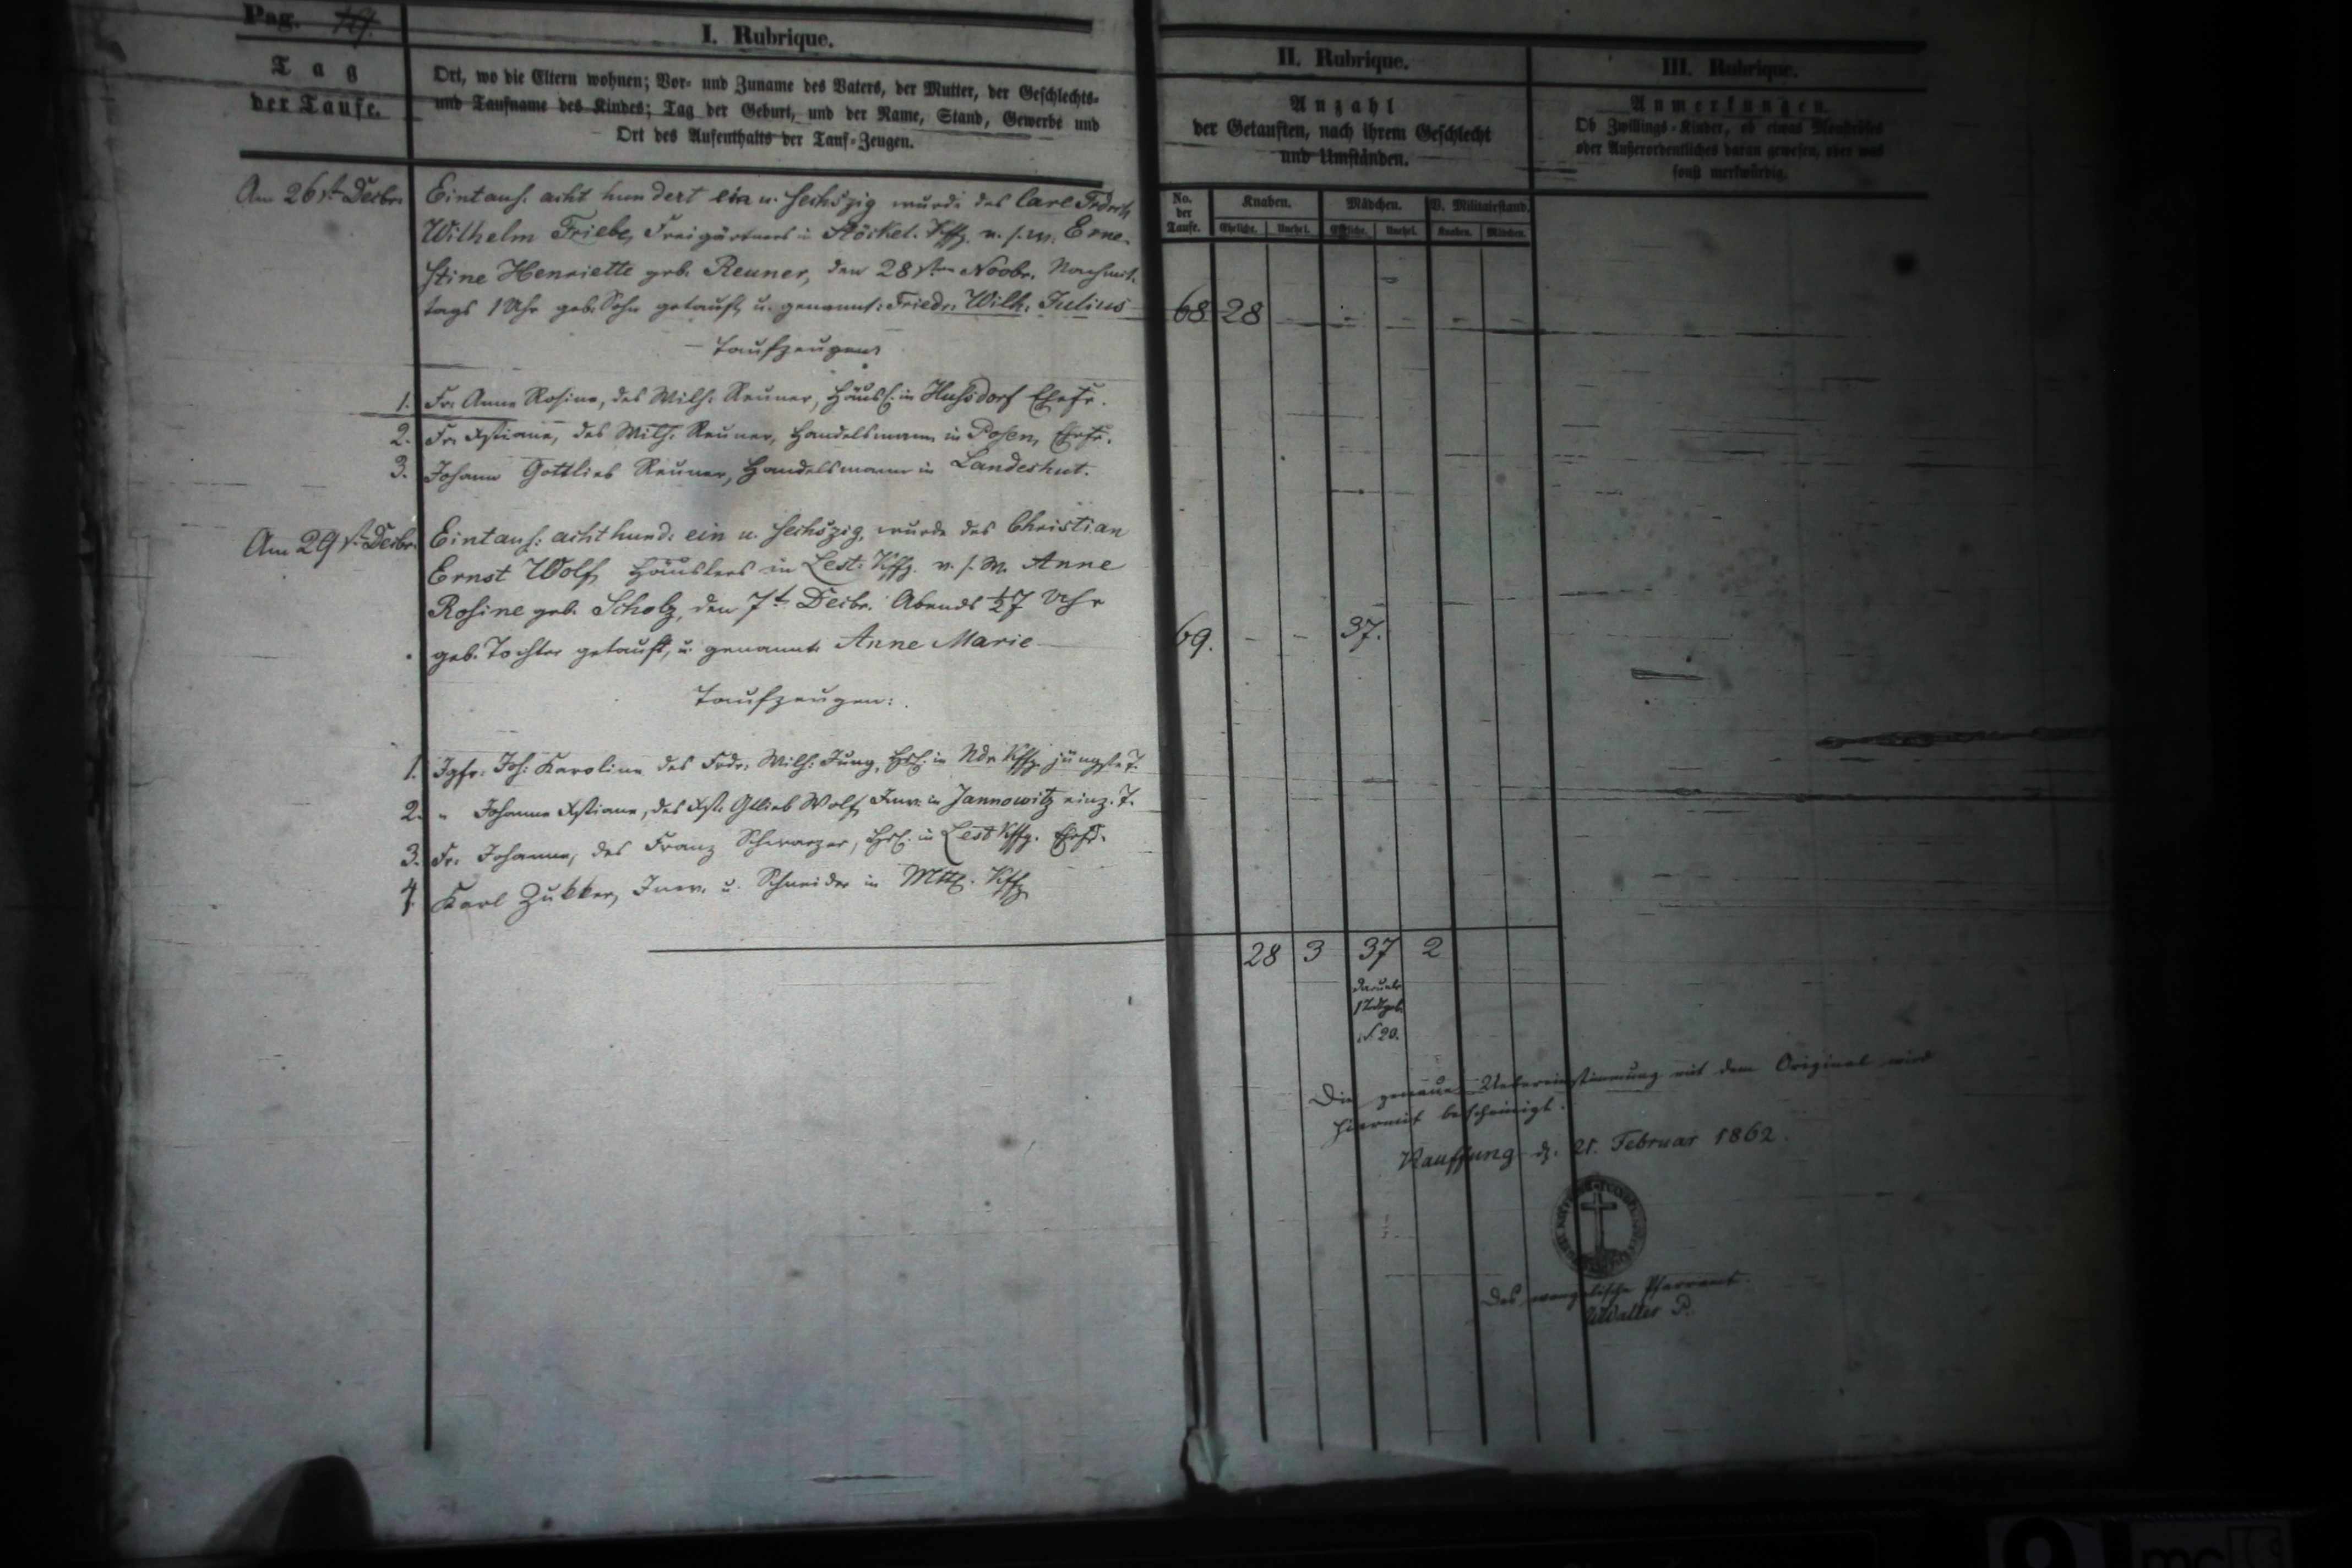 Pag. 19.
Tag
der Taufe.
I. Rubrique.
Ort, wo die Eltern wohnen; Vor- und Zuname des Vaters, der Mutter, der Geschlechts-
und Taufname des Kindes; Tag der Geburt, und der Name, Stand, Gewerbe und
Ort des Aufenthalts der Tauf-Zeugen.
II. Rubrique.
Anzahl
der Getauften, nach ihrem Geschlecht
und Umständen.
III. Rubrique.
Anmerkungen.
Ob Zwillings-Kinder, ob etwas Monströses
oder Außerordentliches daran gewesen, oder was
sonst merkwürdig.
No. der Taufe.
Knaben. Mädchen. V. Militairstand.
Eheliche. Unehel. Eheliche. Unehel. Knaben. Mädchen.
Am 26st. Decbr. Eintaus. acht hundert ein u. sechszig wurde des Carl Frdrch
Wilhelm Friebe, Freigärtners in Stöckel. Kffg. v. s. W. Erne-
stine Henriette geb. Reuner, den 28sten Novbr. Nachmit-
tags 1 Uhr geb. Sohn getauft, u. genannt: Friedr. Wilh. Julius 68. 28
Taufzeugen:
1. Fr. Anne Rosine, des Wilh. Reuner, Häusl. in Hußdorf Ehefr.
2. Fr. Xstiane, des Wilh. Reuner, Handelsmann in Posen, Ehefr.
3. Johann Gottlieb Reuner, Handelsmann in Landeshut.
Am 29st. Decbr. Eintaus: achthund: ein u. sechszig, wurde des Christian
Ernst Wolf, Häuslers in Lest: Kffg. v. s. W. Anne
Rosine geb. Scholz, den 7t. Decbr. Abends ½7 Uhr
geb. Tochter getauft, u. genannt Anne Marie 69. - - 37.
Taufzeugen:
1. Jgfr. Joh. Karoline des Frdr. Wilh. Jung, Hsl. in Ndr Kffg. jüngste T.
2. " Johanne Xstiane, des Xst. Gttlieb Wolf, Inw. in Jannowitz einz. T.
3. Fr. Johanne, des Franz Schwarzer, Hsl. in Lest Kffg. Ehefr.
4. Karl Zukker, Inw. u. Schneider in Mttl. Kffg
28 3 37 2
darunter
1 Todtgeb.
N. 20.
Die genaue Uebereinstimmung mit dem Original wird
hiermit bescheinigt.
Kauffung d. 21. Februar 1862.
Das evangelische Pfarramt.
Walter P.